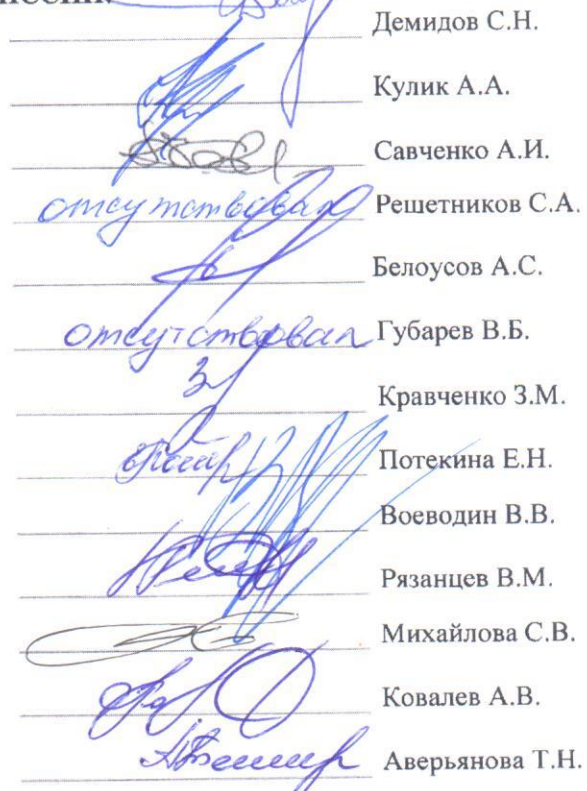 Демидов С.Н.
Кулик А.А.
Савченко А.И.
отсутствовал Решетников С.А.
Белоусов А.С.
отсутствовал Губарев В.Б.
Кравченко З.М.
Потекина Е.Н.
Воеводин В.В.
Рязанцев В.М.
Михайлова С.В.
Ковалев А.В.
Аверьянова Т.Н.